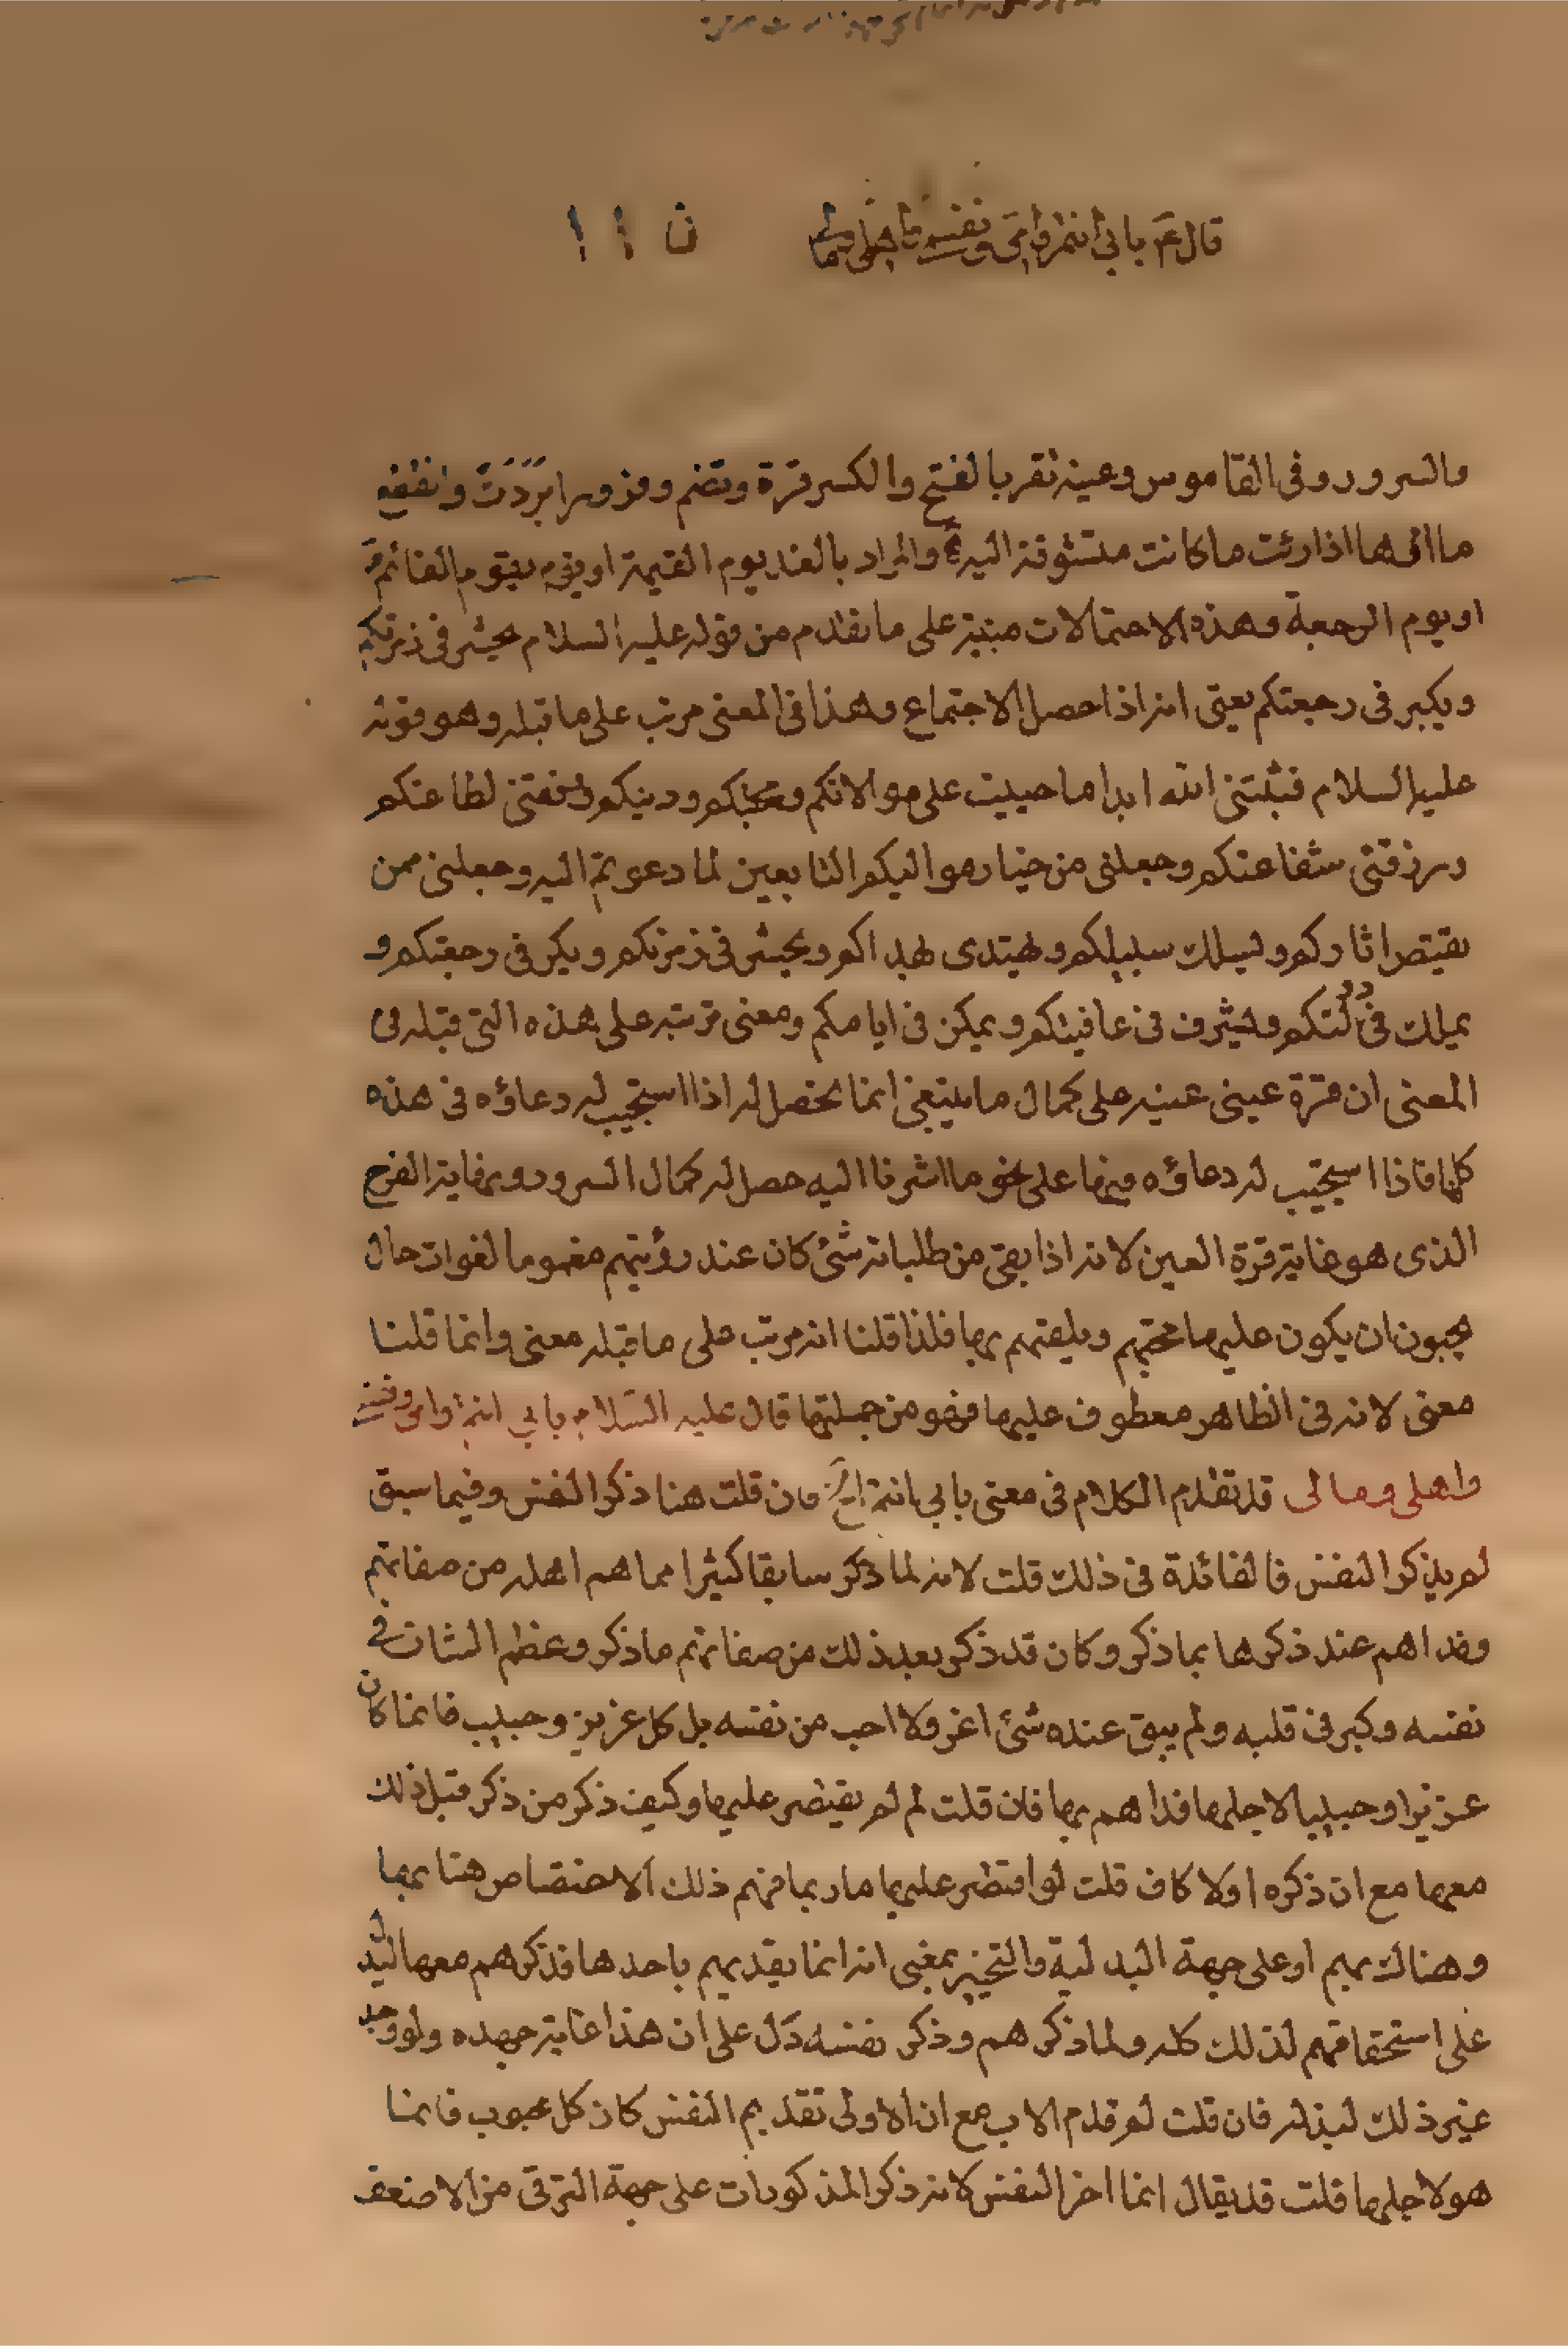 قال ع بابي انتم وامي ونفسي واهلي ومالي
ن ١١
والسرور وفي القاموس وعينه تقر بالفتح والكسر قرة وتضم وقرورا بردت وانقطع
او رأت ما كانت متشوقة اليه والمراد بالغد يوم القيمة او يوم يقوم القائم ع
او يوم الرجعة وهذه الاحتمالات مبنية على ما تقدم من قوله عليه السلام يحشر في زمرتكم
ويكبر في رجعتكم يعني انه اذا حصل الاجتماع وهذا في المعنى مرتب على ما قبله وهو قوله
عليه السلام فثبتني الله ابدا ما حييت على موالاتكم ومحبتكم ودينكم ووفقني لطاعتكم
ورزقني شفاعتكم وجعلني من خيار مواليكم التابعين لما دعوتم اليه وجعلني ممن
يقتص اثاركم ويسلك سبيلكم ويهتدى بهداكم ويحشر في زمرتكم ويكر في رجعتكم و
يملك في دولتكم ويشرف في عافيتكم ويمكن في ايامكم ومعنى ترتبه على هذه التي قبله في
المعنى ان قرة عيني عينه على كمال ما ينبغي انما تحصل له اذا استجيب له دعاؤه في هذه
كلها فاذا استجيب له دعاؤه فيها على نحو ما اشرنا اليه حصل له كمال السرور وغاية الفرح
الذى هو غاية قرة العين لانه اذا بقي من طلباته شئ كان عند رؤيتهم مغموما لفوات حال
يحبون ان يكون عليها محبهم ويلقهم بها فلذا قلنا انه مرتب على ما قبله معنى وانما قلنا
معنى لانه في الظاهر معطوف عليها فهو من جملتها قال عليه السلام بابي انتم وامي ونفسي
واهلي ومالي قد تقدم الكلام في معنى بابي انتم الخ فان قلت هنا ذكر النفس وفيما سبق
لم يذكر النفس فما الفائدة في ذلك قلت لانه لما ذكر سابقا كثيرا مما هم اهله من صفاتهم
وفداهم عند ذكرها بما ذكر وكان قد ذكر بعد ذلك من صفاتهم ما ذكر وعظم الشان في
نفسه وكبر في قلبه ولم يبق عنده شئ اعز ولا احب من نفسه بل كل عزيز وحبيب فانما كان
عزيزا وحبيبا لاجلها فداهم بها فان قلت لم لم يقتصر عليها وكيف ذكر من ذكر قبل ذلك
معها مع ان ذكره اولا كاف قلت لو اقتصر عليها ربما فهم ذلك الاختصاص هنا بها
وهناك بهم او على جهة البدلية والتخيير بمعنى انه انما يفديهم باحدها فذكرهم معها ليدل
على استحقاقهم لذلك كله ولما ذكرهم وذكر نفسه دل على ان هذا غاية جهده ولو وجد
غير ذلك لبذله فان قلت لم قدم الاب مع ان الاولى تقديم النفس كان كل محبوب فانما
هو لاجلها قلت قد يقال انما اخر النفس لانه ذكر المذكورات على جهة الترقي من الاضعف